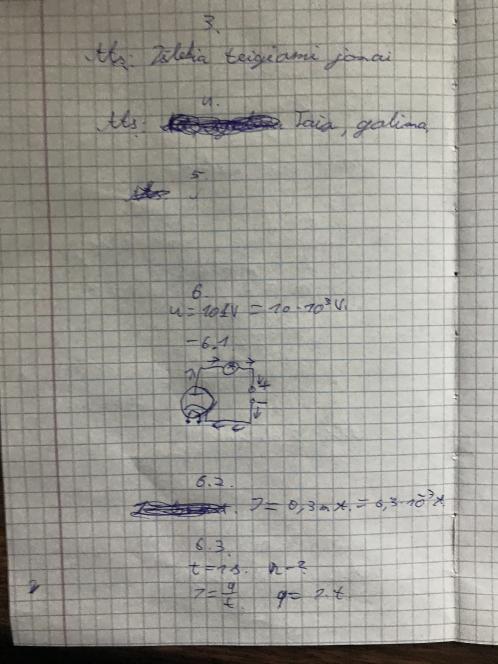 3.
Ats: Išlekia teigiami jonai
4.
Ats: Taip, galima
5
6.
U = 10 kV = 10·10³ V.
6.1
6.2.
I = 0,3 mA = 0,3·10⁻³ A.
6.3.
t = 1 s. n - ?
I = q/t q = I·t